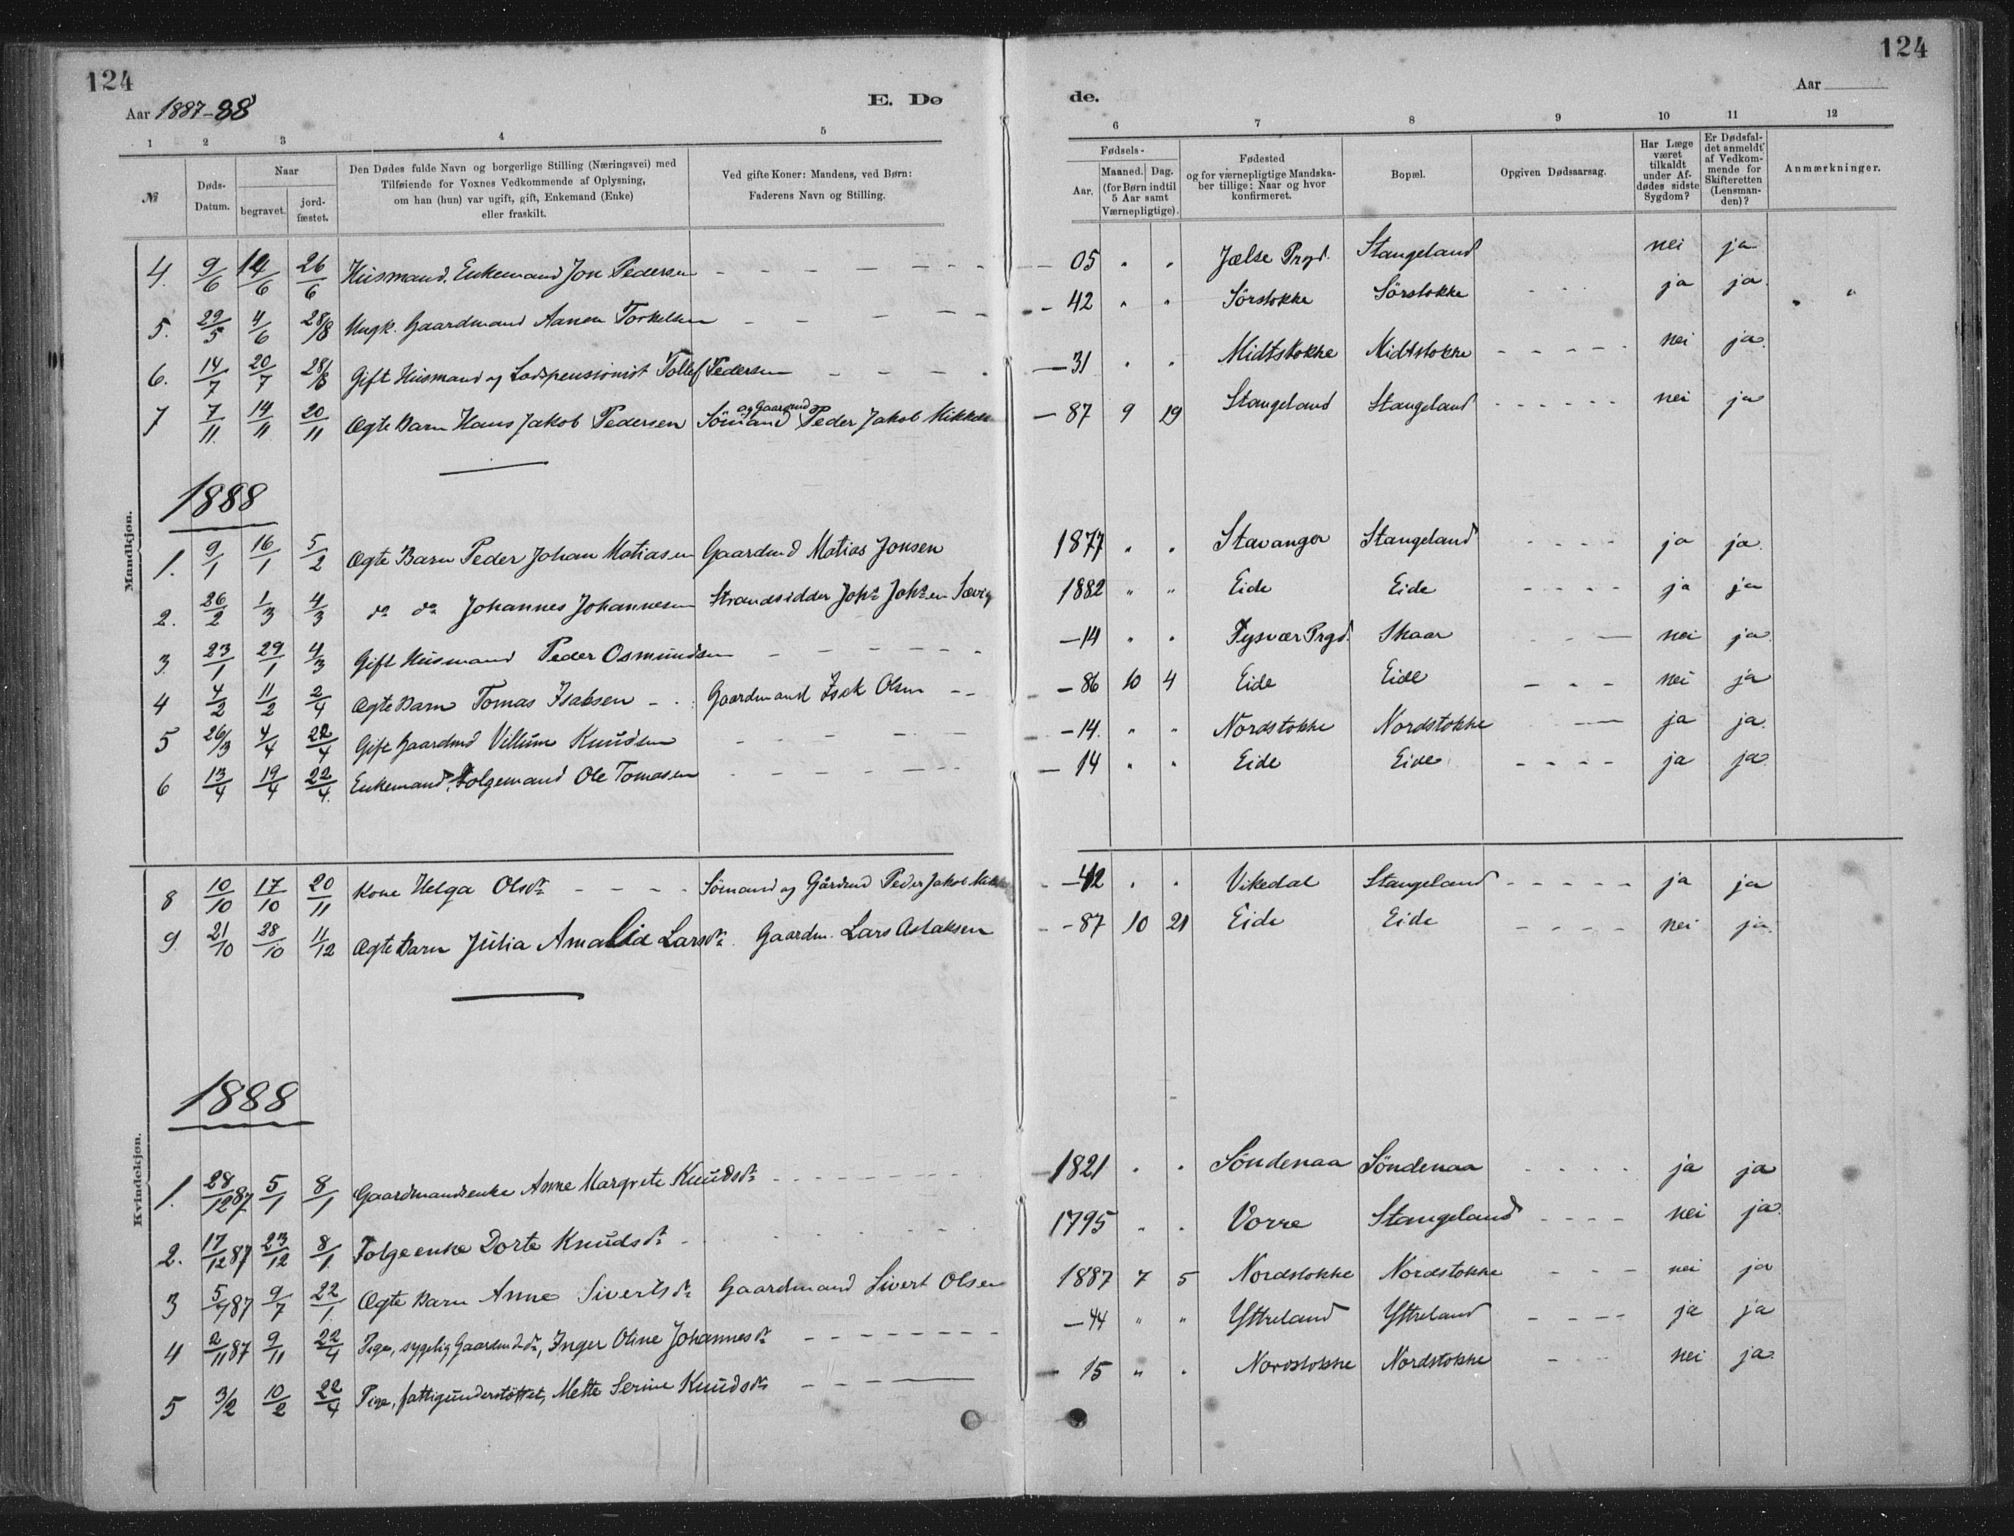 124
124
Aar 1887-88
E. Dø
de.
Aar
1 2 3 4 5 6 7 8 9 10 11 12
№
Døds-Datum.
Naar
begravet.
jord-fæstet.
Den Dødes fulde Navn og borgerlige Stilling (Næringsvei) med
Tilføiende for Voxnes Vedkommende af Oplysning,
om han (hun) var ugift, gift, Enkemand (Enke)
eller fraskilt.
Ved gifte Koner: Mandens, ved Børn:
Faderens Navn og Stilling.
Fødsels-
Aar.
Maaned. Dag.
(for Børn indtil
5 Aar samt
Værnepligtige).
Fødested
og for værnepligtige Mandska-
ber tillige: Naar og hvor
konfirmeret.
Bopæl.
Opgiven Dødsaarsag.
Har Læge
været
tilkaldt
under Af-
dødes sidste
Sygdom?
Er Dødsfal-
det anmeldt
af Vedkom-
mende for
Skifteretten
(Lensman-
den)?
Anmærkninger.
Mandkjøn.
4. 9/6 14/6 26/6 Huusmand. Enkemand Jon Pedersen - - - 05 " " Jælse Prgd. Stangeland nei ja
5. 29/5 4/6 28/8 Ungk. Gaardmand Aanen Torkelsen - - - 42 " " Sörstokke Sörstokke - - - ja ja " "
6. 14/7 20/7 28/8 Gift Huusmand og Ladspensionist Tollef Pedersen - - - 31 " " Midtstokke Midtstokke - - - nei ja.
7 7/11 14/11 20/11 Ægte Barn Hans Jakob Pedersen Sömand og Gaardmd Peder Jakob Mikkels - 87 9 19 Stangeland Stangeland - - - nei ja
1888
1. 9/1 16/1 5/2 Ægte Barn Peder Johan Matiasen Gaardmd Matias Jonsen 1877 " " Stavanger Stangeland - - - ja ja.
2. 26/2 1/3 4/3 do do Johannes Johannesen Strandsidder Johs Johsen Sævig 1882 " " Eide Eide - - - ja ja
3. 23/1 29/1 4/3 Gift Huusmand Peder Osmundsen - - - -14 " " Tysvær Prgd. Skaar - - - nei ja.
4 4/2 11/2 2/4 Ægte Barn Tomas Isaksen - - Gaardmand Isak Olsen - - -86 10 4 Eide Eide - - - nei ja
5 26/3 4/4 22/4 Gift Gaardmd Villum Knudsen - - - -14. " " Nordstokke Nordstokke - - - ja ja.
6 13/4 19/4 22/4 Enkemand, Folgemand Ole Tomasen - - - 14 " " Eide Eide - - - ja ja.
8 10/10 17/10 20/11 Kone Helga Olsdr - - - Sömand og Gårdmd Peder Jakob -42 " " Vikedal Stangeland - - - ja ja
9. 21/10 28/10 11/12 Ægte Barn Julia Amalia Larsdr. Gaardm. Lars Aslaksen - 87 10 21 Eide Eide - - - nei ja.
Kvindekjøn.
1888
1. 28/12 87. 5/1 8/1 Gaardmandsenke Anne Margrete Knudsdr - - - 1821 " " Söndenaa Söndenaa - - - ja ja
2. 17/12 87 23/12 8/1 Folgeenke Dorte Knudsdr - - - 1795 " " Vorre Stangeland - - - nei ja.
3 5/7 87 9/7 22/1. Ægte Barn Anne Sivertsdr Gaardmand Sivert Olsen 1887 7 5 Nordstokke Nordstokke - - - nei ja
4 2/11 87 9/11 22/4 Pige, sygelig Gaardmdsdr, Inger Oline Johannesdr - - - -44 " " Ytreland Ytreland - - - ja ja
5 3/2 10/2 22/4 Pige, fattigunderstöttet, Mette Serine Knudsdr - - - 15 " " Nordstokke Nordstokke - - - nei ja.